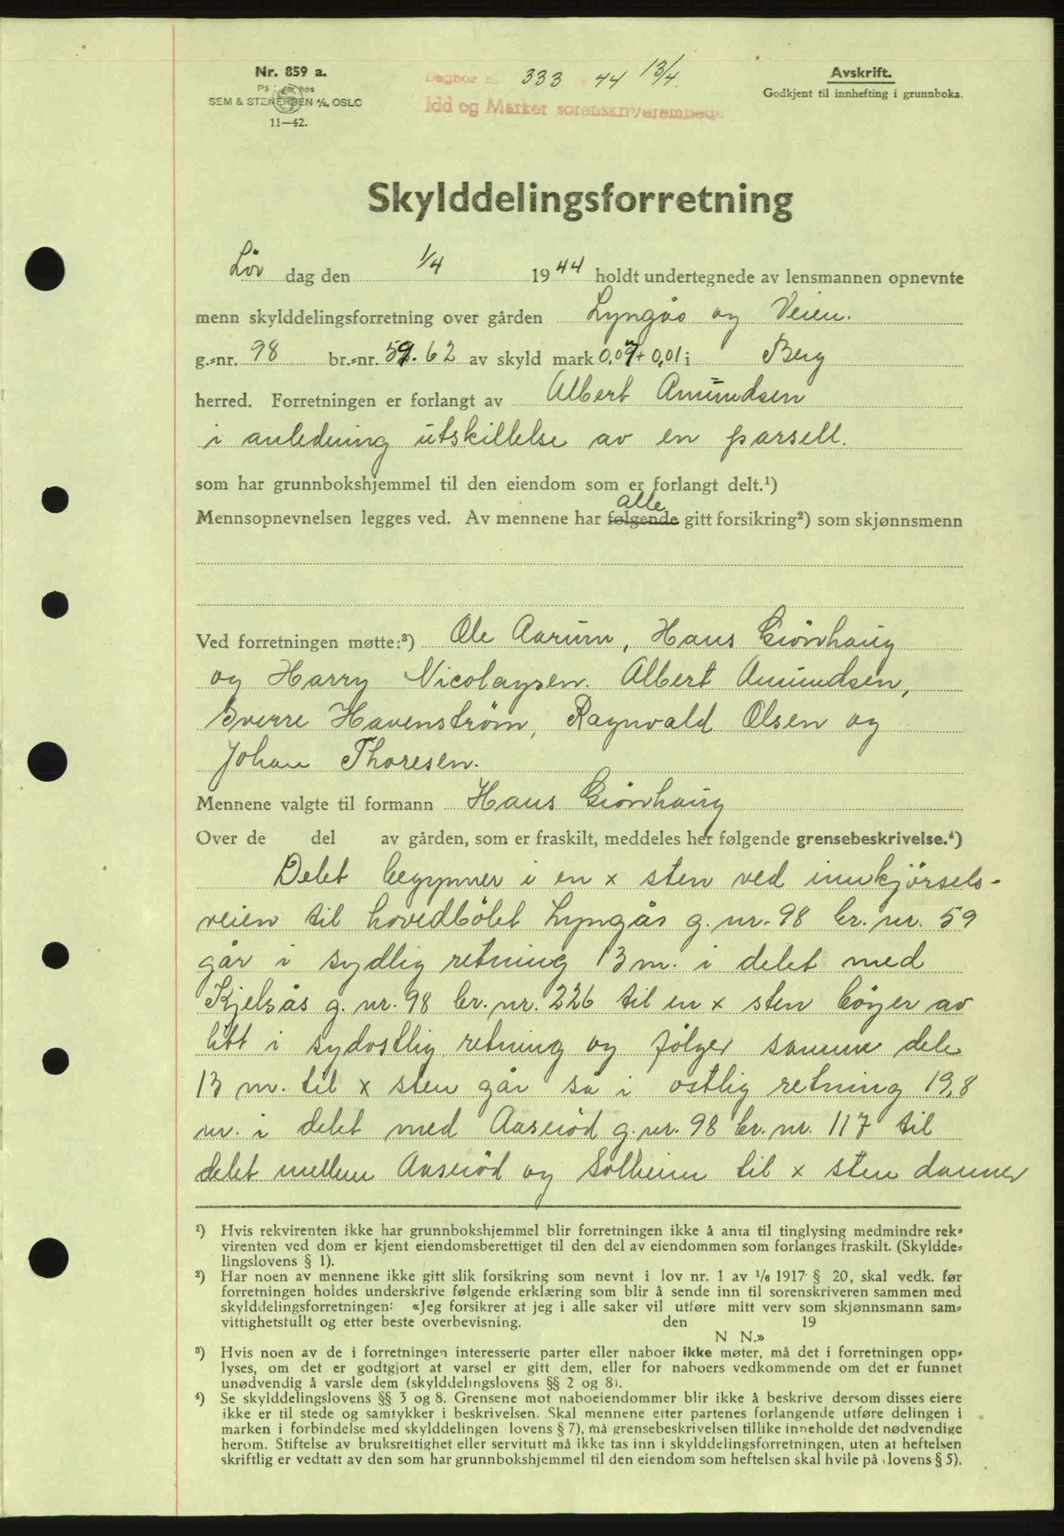 Nr. 859 a.
På lager hos
SEM & STENERSEN A/S, OSLO
11—42.
Dagbok nr. 333 44 13/4
Idd og Marker sorenskriverembede
Avskrift.
Godkjent til innhefting i grunnboka.
Skylddelingsforretning
Lör dag den 1/4 1944 holdt undertegnede av lensmannen opnevnte
menn skylddelingsforretning over gården Lyngås og Veien.
g.-nr. 98 br.-nr. 59. 62 av skyld mark 0,07 + 0,01 i Berg
herred. Forretningen er forlangt av Albert Amundsen
i anledning utskillelse av en parsell.
som har grunnbokshjemmel til den eiendom som er forlangt delt.¹)
alle
Mennsopnevnelsen legges ved. Av mennene har følgende gitt forsikring²) som skjønnsmenn
Ved forretningen møtte:³) Ole Aarum, Hans Grönhaug
og Harry Nicolaysen. Albert Amundsen,
Sverre Havenstrøm, Ragnvald Olsen og
Johan Thoresen.
Mennene valgte til formann Hans Grönhaug
Over de del av gården, som er fraskilt, meddeles her følgende grensebeskrivelse.⁴)
Delet begynner i en x sten ved innkjörsels-
veien til hovedbölet Lyngås g. nr. 98 br. nr. 59
går i sydlig retning 13 m. i delet med
Kjelsås g. nr. 98 br. nr. 226 til en x sten böyer av
litt i sydostlig retning og fölger samme dele
13 m. til x sten går så i ostlig retning 19,8
m. i delet med Aaserød g. nr. 98 br. nr. 117 til
delet mellem Aaserød og Solheim til x sten danner
¹) Hvis rekvirenten ikke har grunnbokshjemmel blir forretningen ikke å anta til tinglysing medmindre rek-
virenten ved dom er kjent eiendomsberettiget til den del av eiendommen som forlanges fraskilt. (Skyldde-
lingslovens § 1).
²) Har noen av mennene ikke gitt slik forsikring som nevnt i lov nr. 1 av 1/6 1917 § 20, skal vedk. før
forretningen holdes underskrive følgende erklæring som blir å sende inn til sorenskriveren sammen med
skylddelingsforretningen: «Jeg forsikrer at jeg i alle saker vil utføre mitt verv som skjønnsmann sam-
vittighetsfullt og etter beste overbevisning. den 19
N N.»
³) Hvis noen av de i forretningen interesserte parter eller naboer ikke møter, må det i forretningen opp-
lyses, om det er godtgjort at varsel er gitt dem, eller for naboers vedkommende om det er funnet
unødvendig å varsle dem (skylddelingslovens §§ 2 og 8).
⁴) Se skylddelingslovens §§ 3 og 8. Grensene mot naboeiendommer blir ikke å beskrive dersom disses eiere
ikke er til stede og samtykker i beskrivelsen. Skal mennene etter partenes forlangende utføre delingen i
marken i forbindelse med skylddelingen lovens § 7), må grensebeskrivelsen tillike inneholde det nødvendige
herom. Stiftelse av bruksrettighet eller servitutt må ikke tas inn i skylddelingsforretningen, uten at heftelsen
skriftlig er vedtatt av den som har grunnbokshjemmel til den eiendom som heftelsen skal hvile på lovens § 5).